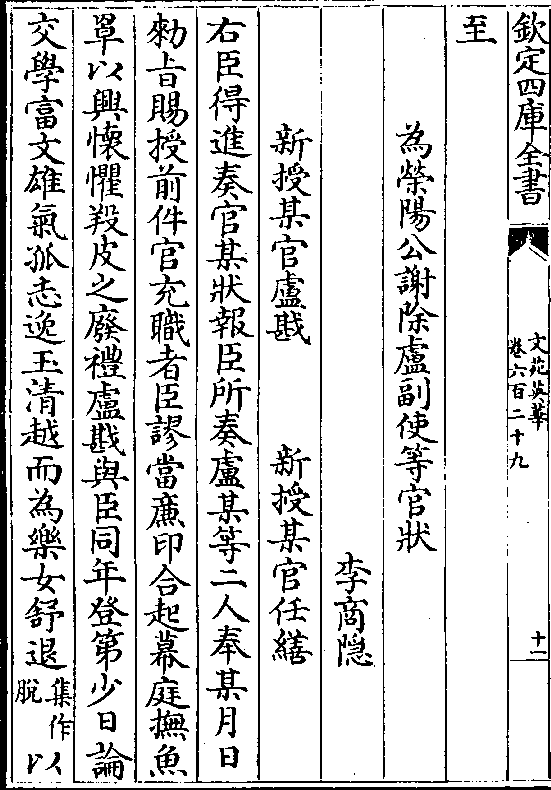 欽定四庫全書
文苑英華
卷六百二十九
十一
至
為榮陽公謝除盧副使等官狀
李商隐
新授某官盧戡 新授某官任繕
右臣得進奏官某狀報臣所奏盧某等二人奉某月日
勑㫖賜授前件官充職者臣謬當廉印合起幕庭撫魚
罩以興懐懼羖皮之廢禮盧戡與臣同年登第少日論
交學富文雄氣孤志逸玉清越而為樂女舒退集作脫以